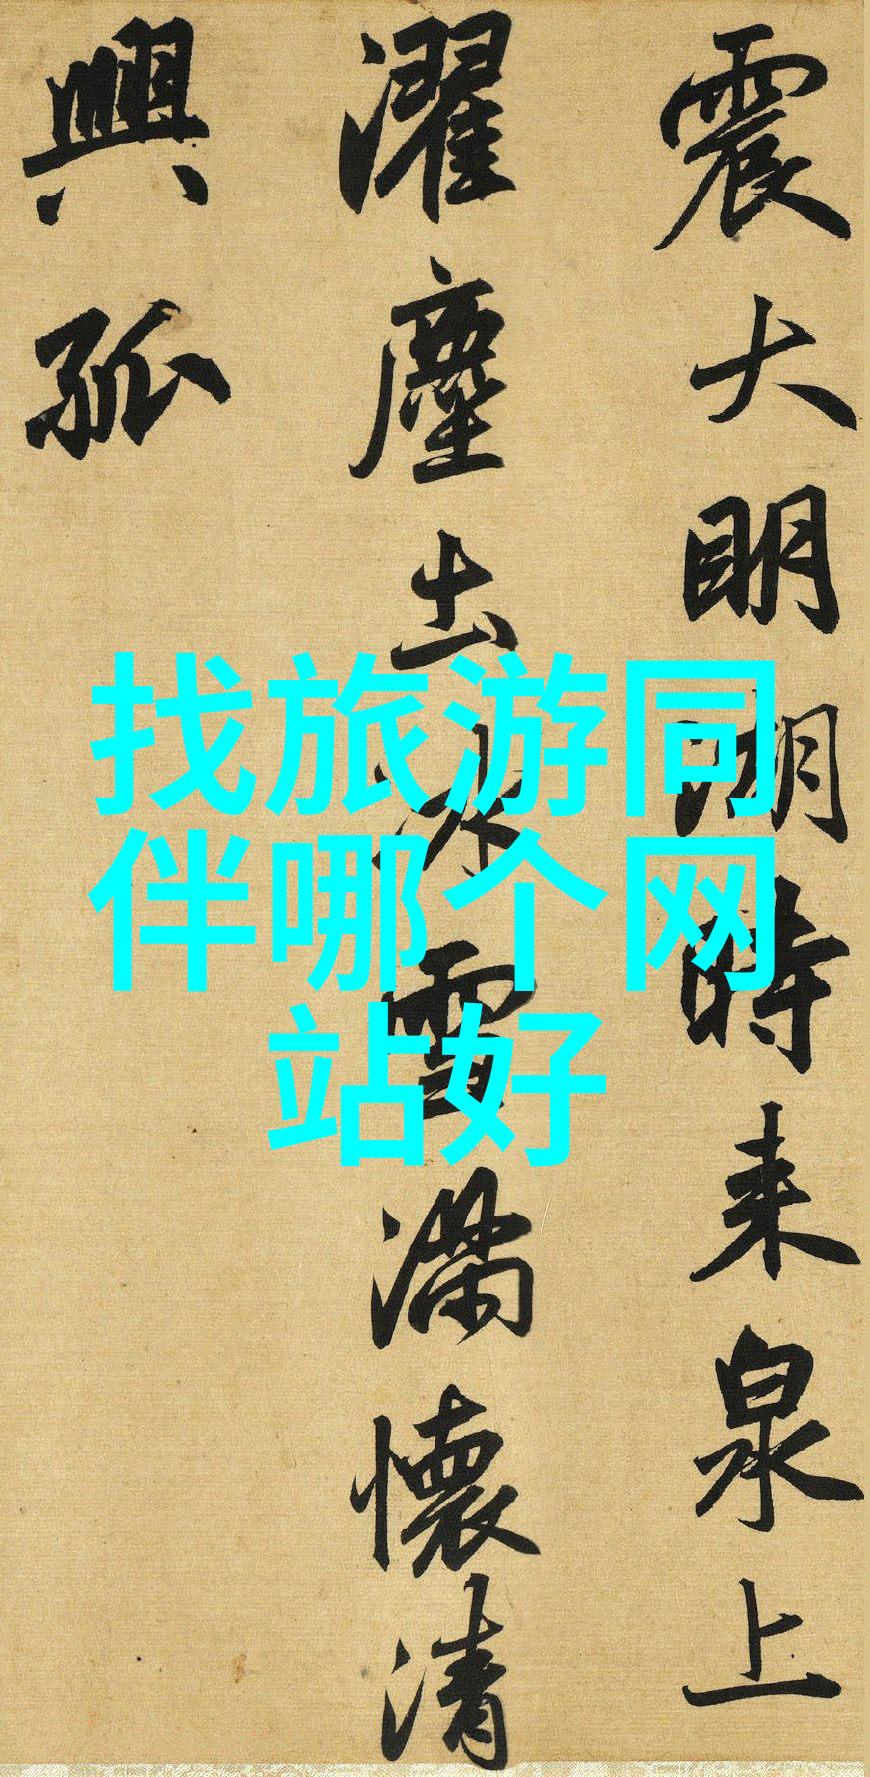 震大明湖時来泉上
濯塵土冰雪滿懷清
興孤
找旅游同
伴哪个网
站好